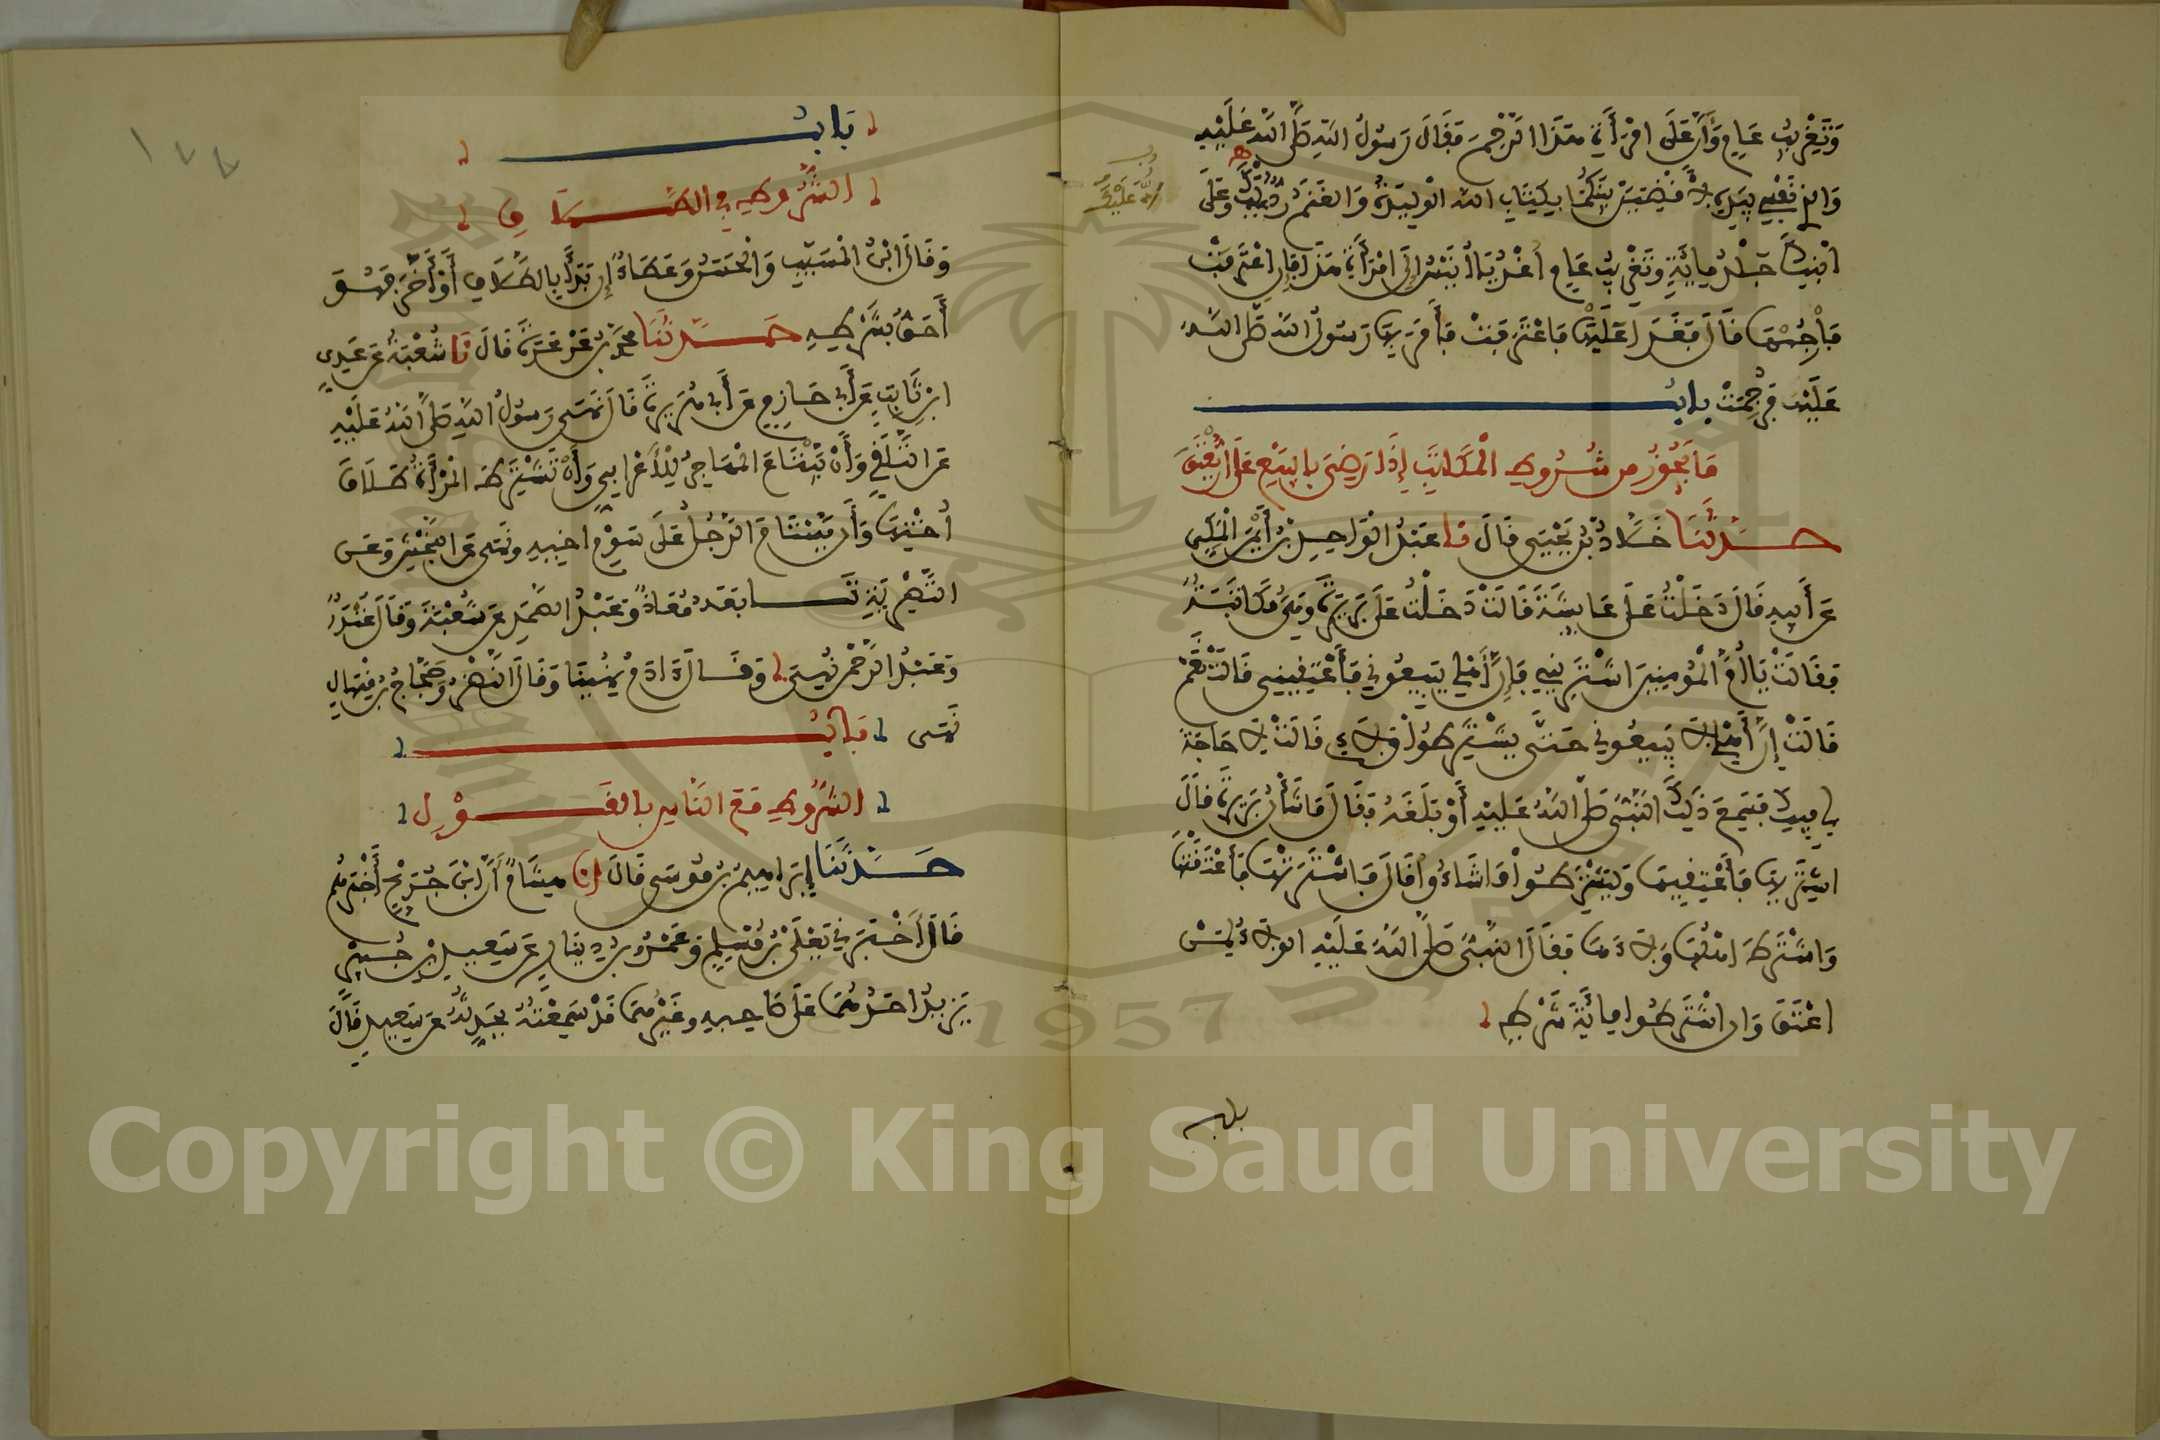 وَتَغْرِيبُ عَامٍ وَأَنَّ عَلَى امْرَأَةِ هَذَا الرَّجْمَ فَقَالَ رَسُولُ اللهِ صَلَّى اللهُ عَلَيْهِ
وَالذِي نَفْسِي بِيَدِهِ لَأَقْضِيَنَّ بَيْنَكُمَا بِكِتَابِ اللهِ الْوَلِيدَةُ وَالْغَنَمُ رَدٌّ وَعَلَى
رد عليك
ابْنِكَ جَلْدُ مِائَةٍ وَتَغْرِيبُ عَامٍ اغْدُ يَا أُنَيْسُ إِلَى امْرَأَةِ هَذَا فَإِنِ اعْتَرَفَتْ
فَارْجُمْهَا قَالَ فَغَدَا عَلَيْهَا فَاعْتَرَفَتْ فَأَمَرَ بِهَا رَسُولُ اللهِ صَلَّى اللهُ
عَلَيْهِ فَرُجِمَتْ بَابُ
مَا يَجُوزُ مِن شُرُوطِ الْمُكَاتَبِ إِذَا رَضِيَ بِالبَيْعِ عَلَى أَنْ يُعْتَقَ
حَدَّثَنَا خَلَّادُ بْنُ يَحْيَى قَالَ نا عَبْدُ الْوَاحِدِ بْنُ أَيْمَنَ الْمَكِّي
عَنْ أَبِيهِ قَالَ دَخَلْتُ عَلَى عَائِشَةَ قَالَتْ دَخَلَتْ عَلَيَّ بَرِيرَةُ وَهِيَ مُكَاتَبَةٌ
فَقَالَتْ يَا أُمَّ الْمُؤْمِنِينَ اشْتَرِينِي فَإِنَّ أَهْلِي يَبِيعُونِي فَأَعْتِقِينِي قَالَتْ نَعَمْ
قَالَتْ إِنَّ أَهْلِي لَا يَبِيعُونِي حَتَّى يَشْتَرِطُوا وَلَائِي قَالَتْ لَا حَاجَةَ
لِي فِيكِ فَسَمِعَ ذَلِكَ النَّبِيُّ صَلَّى اللهُ عَلَيْهِ أَوْ بَلَغَهُ فَقَالَ مَا شَأْنُ بَرِيرَةَ فَقَالَ
اشْتَرِيهَا فَأَعْتِقِيهَا وَلْيَشْتَرِطُوا مَا شَاءُوا قَالَ فَاشْتَرَتْهَا فَأَعْتَقَتْهَا
وَاشْتَرَطَ اهْلُهَا وَلَاءَهَا فَقَالَ النَّبِيُّ صَلَّى اللهُ عَلَيْهِ الولَاءُ لِمَنْ
اعْتَقَ وَان اشْتَرَطُوا مِائَةَ شَرْطٍ
باب
١٧٧
بَابُ
الشُّرُوطِ فِي الطَّلَاقِ
وَقَالَ ابْنُ الْمُسَيِّبِ وَالْحَسَنُ وَعَطَاءٌ إِن بَدَأَ بِالطَّلَاقِ أَوْ أَخَّرَ فَهُوَ
أَحَقُّ بِشَرْطِهِ حَدَّثَنَا مُحَمَّدُ بْنُ عَرْعَرَةَ قَالَ نَا شُعْبَةُ عَنْ عَدِيِّ
ابْنِ ثَابِتٍ عَنْ أَبِي حَازِمٍ عَنْ أَبِي هُرَيْرَةَ قَالَ نَهَى رَسُولُ اللهِ صَلَّى اللهُ عَلَيْهِ
عَنِ التَّلَقِّي وَأَنْ يَبْتَاعَ الْمُهَاجِرُ لِلْأَعْرَابِيِّ وَأَنْ تَشْتَرِطَ الْمَرْأَةُ طَلَاقَ
أُخْتِهَا وَأَن يَسْتَامَ الرَّجُلُ عَلَى سَوْمِ اخِيهِ وَنَهَى عَنِ النَّجْشِ وَعَن
التَّصْرِيَةِ تَابَعَهُ مُعَاذٌ وَعَبْدُ الصَّمَدِ عَن شُعْبَةَ وَقَالَ غُنْدَرٌ
وَعَبْدُ الرَّحْمَنِ نُهِيَ وَقَالَ ءَادَمُ نُهِينَا وَقَالَ النَّضْرُ وَحَجَّاجُ بْنُ مِنْهَالٍ
نَهَى بَابُ
الشُّرُوطِ مَعَ النَّاسِ بِالقَوْلِ
حَدَّثَنَا إِبْرَاهِيمُ بْنُ مُوسَى قَالَ انا هِشَامٌ أَنَّ ابْنَ جُرَيْجٍ أَخْبَرَهُمْ
قَالَ أَخْبَرَنِي يَعْلَى بْنُ مُسْلِمٍ وَعَمْرُو بْنُ دِينَارٍ عَنْ سَعِيدِ بْنِ جُبَيْرٍ
يَزِيدُ احَدُهُمَا عَلَى صَاحِبِهِ وَغَيْرُهُمَا قَدْ سَمِعْتُهُ يُحَدِّثُهُ عَنْ سَعِيدٍ قَالَ
1957
Copyright © King Saud University